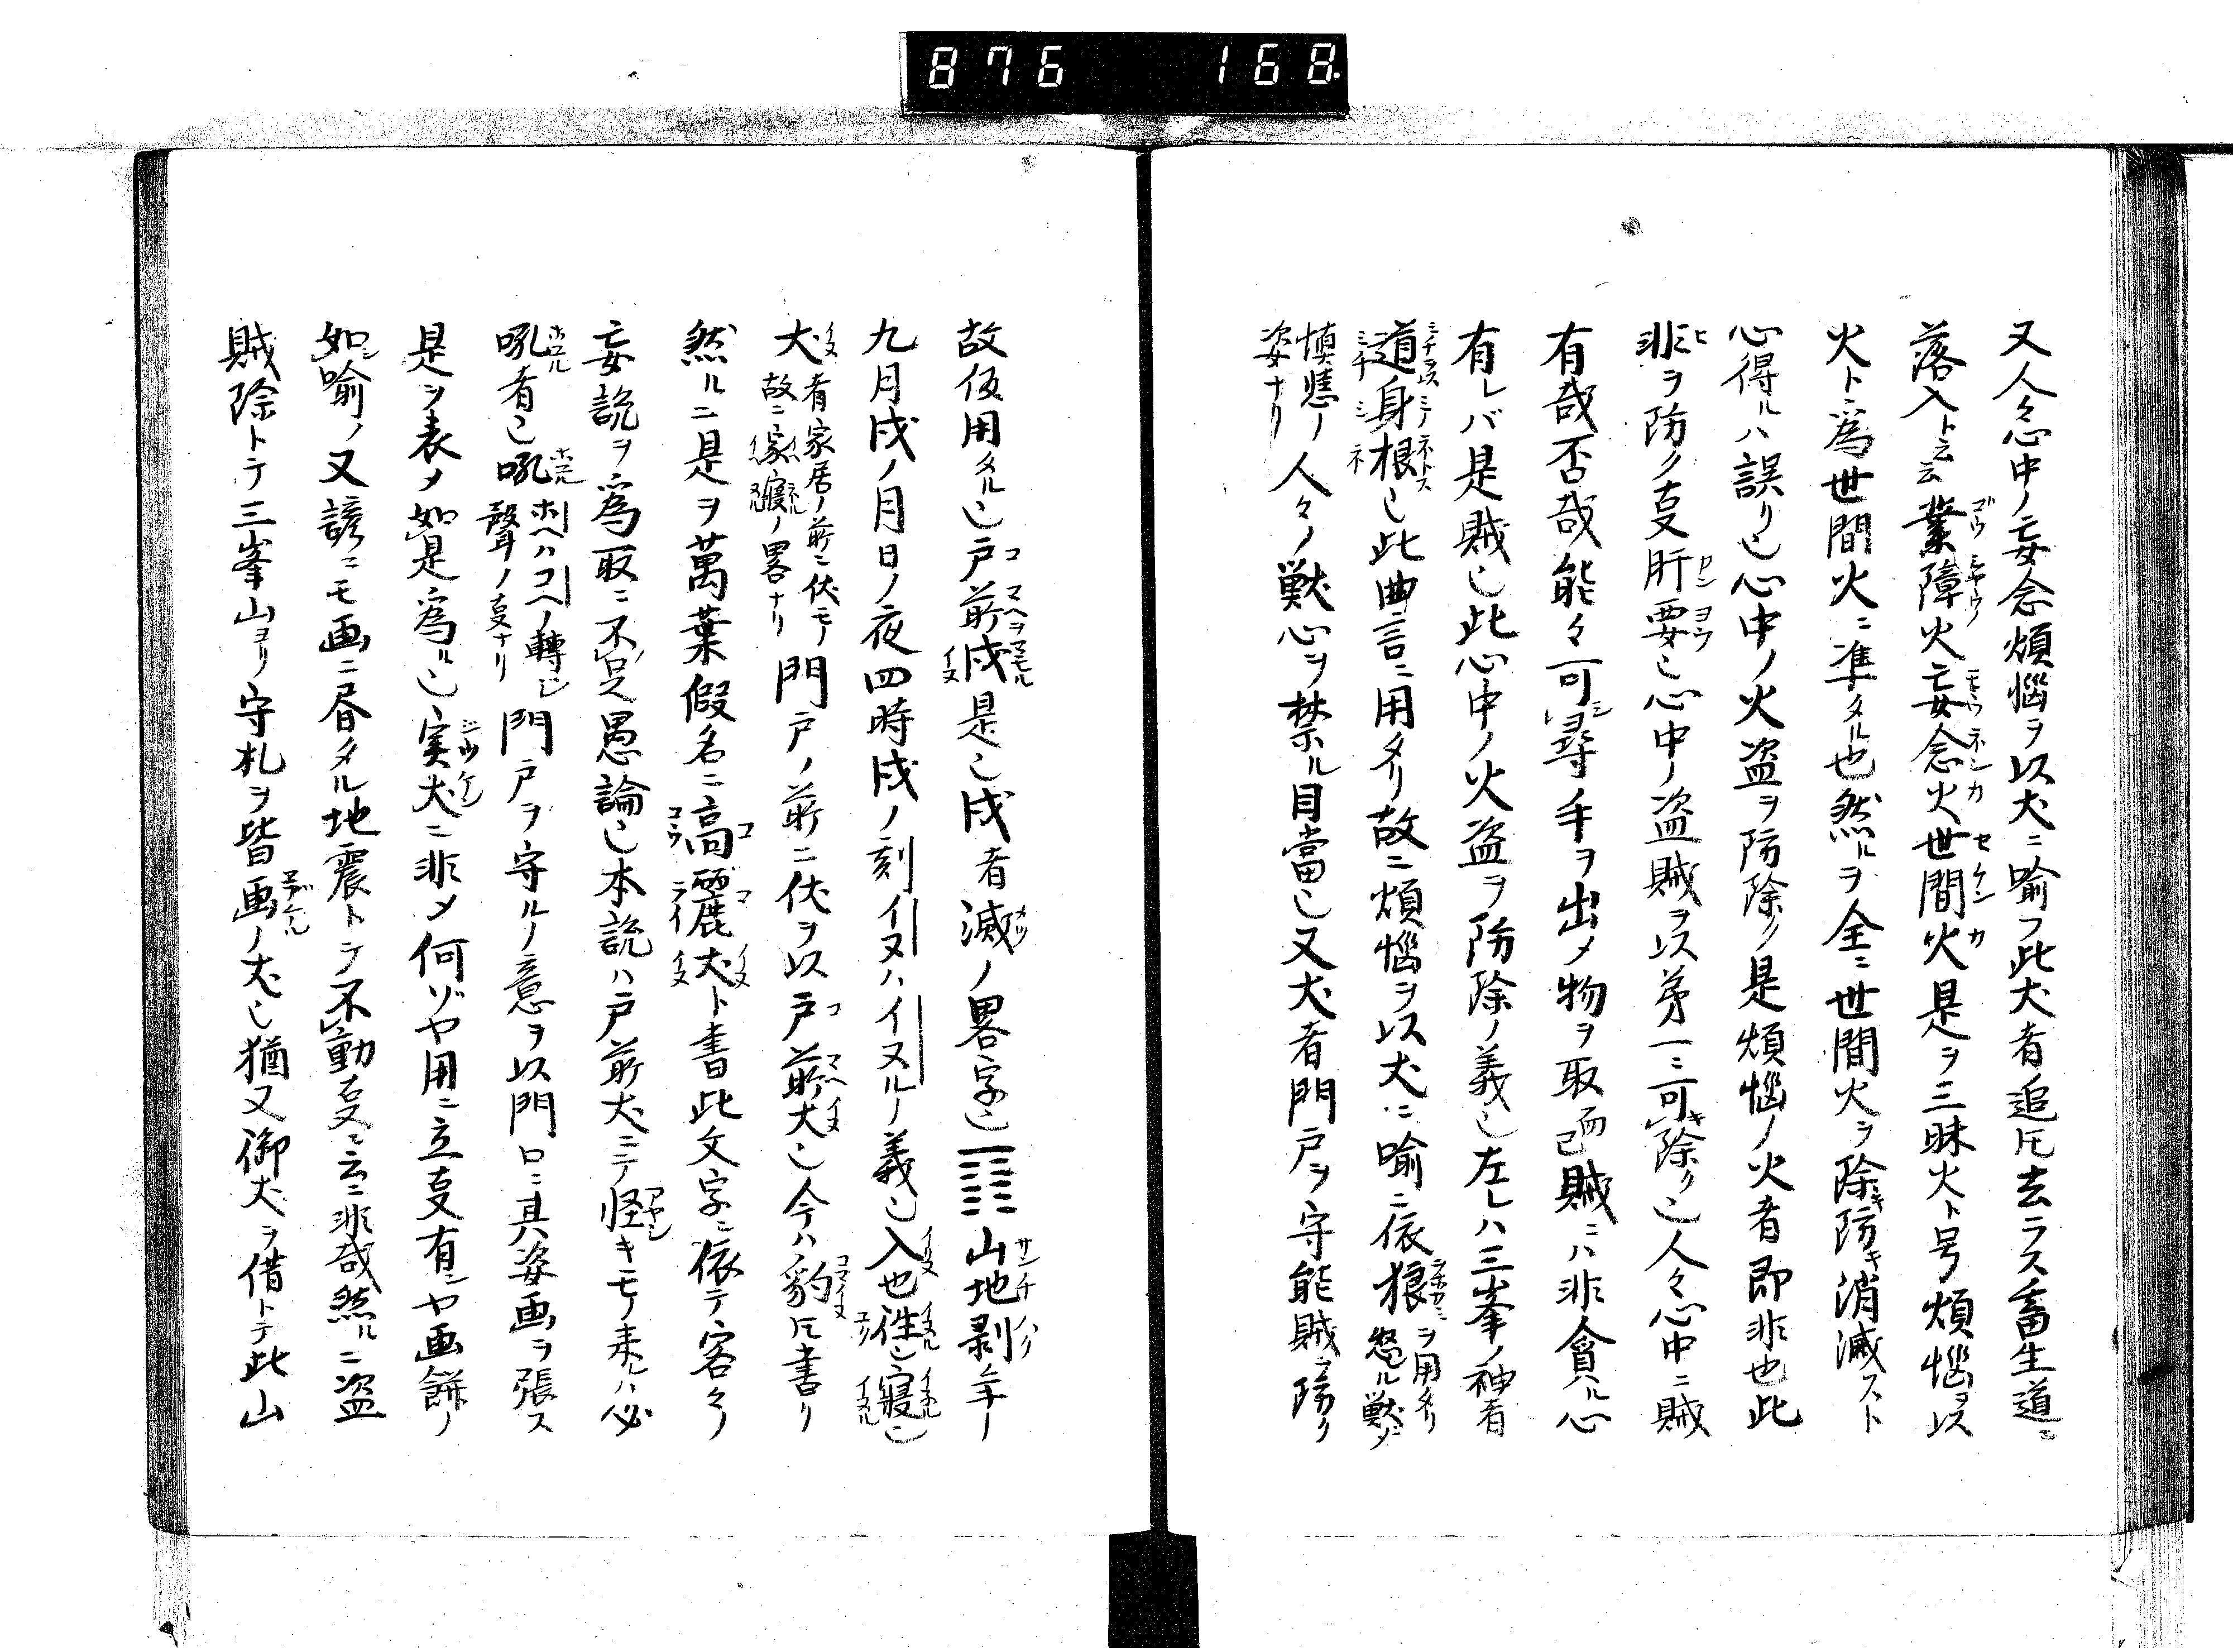 876 168.
又人々心中ノ妄念煩悩ヲ以犬ニ喩フ此犬者追𪜈去ラス畜生道ニ
落入ト云云業障火妄念火世間火是ヲ三昧火ト号煩悩ヲ以
火ト為世間火ニ準タル也然ルヲ全ニ世間火ヲ除キ防キ消滅スト
心得ルハ誤リ也心中ノ火盗ヲ防除ク是煩悩ノ火者即非也此
非ヲ防ク㕝肝要也心中ノ盗賊ヲ以第一ニ可除キ也人々心中ニ賊
有哉否哉能々可尋シ手ヲ出メ物ヲ取而已賊ニハ非貪ル心
有レバ是賊也此心中ノ火盗ヲ防除ノ義也左レハ三峯ノ神者
道身根也此典言ニ用タリ故ニ煩悩ヲ以犬ニ喩ニ依狼ヲ用タリ怒ル獣
慎患ノ姿ナリ人々ノ獣心ヲ禁ル目當也又犬者門戸ヲ守能賊ヲ防ク
故仮用タル也戸前戌是也戌者滅ノ畧字也䷖山地剥
九月戌ノ月日ノ夜四時戌ノ刻イヌハイヌルノ義也入也徃也寝也
犬者家居ノ前ニ伏モノ故ニ家寝ノ畧ナリ門戸ノ前ニ伏ヲ以戸前犬也今ハ豹𪜈書リ
然ルニ是ヲ萬葉假名ニ高麗犬ト書此文字ニ依テ客々
妄説ヲ為取ニ不足愚論也本説ハ戸前犬ニテ怪キモノ来レハ必
吼者也吼ホヘハコヘノ轉也聲ノ㕝ナリ門戸ヲ守ルノ意ヲ以門口ニ其姿画ヲ張ス
是ヲ表メ如是為ル也実犬ニ非メ何ゾヤ用ニ立㕝有ンヤ画餅ノ
如シ喩ノ又諺ニモ画ニ昼タル地震トテ不動㕝ニ云ニ非哉然ルニ盗
賊除トテ三峯山ヨリ守札ヲ皆画ノ犬也猶又御犬ヲ借トテ此山